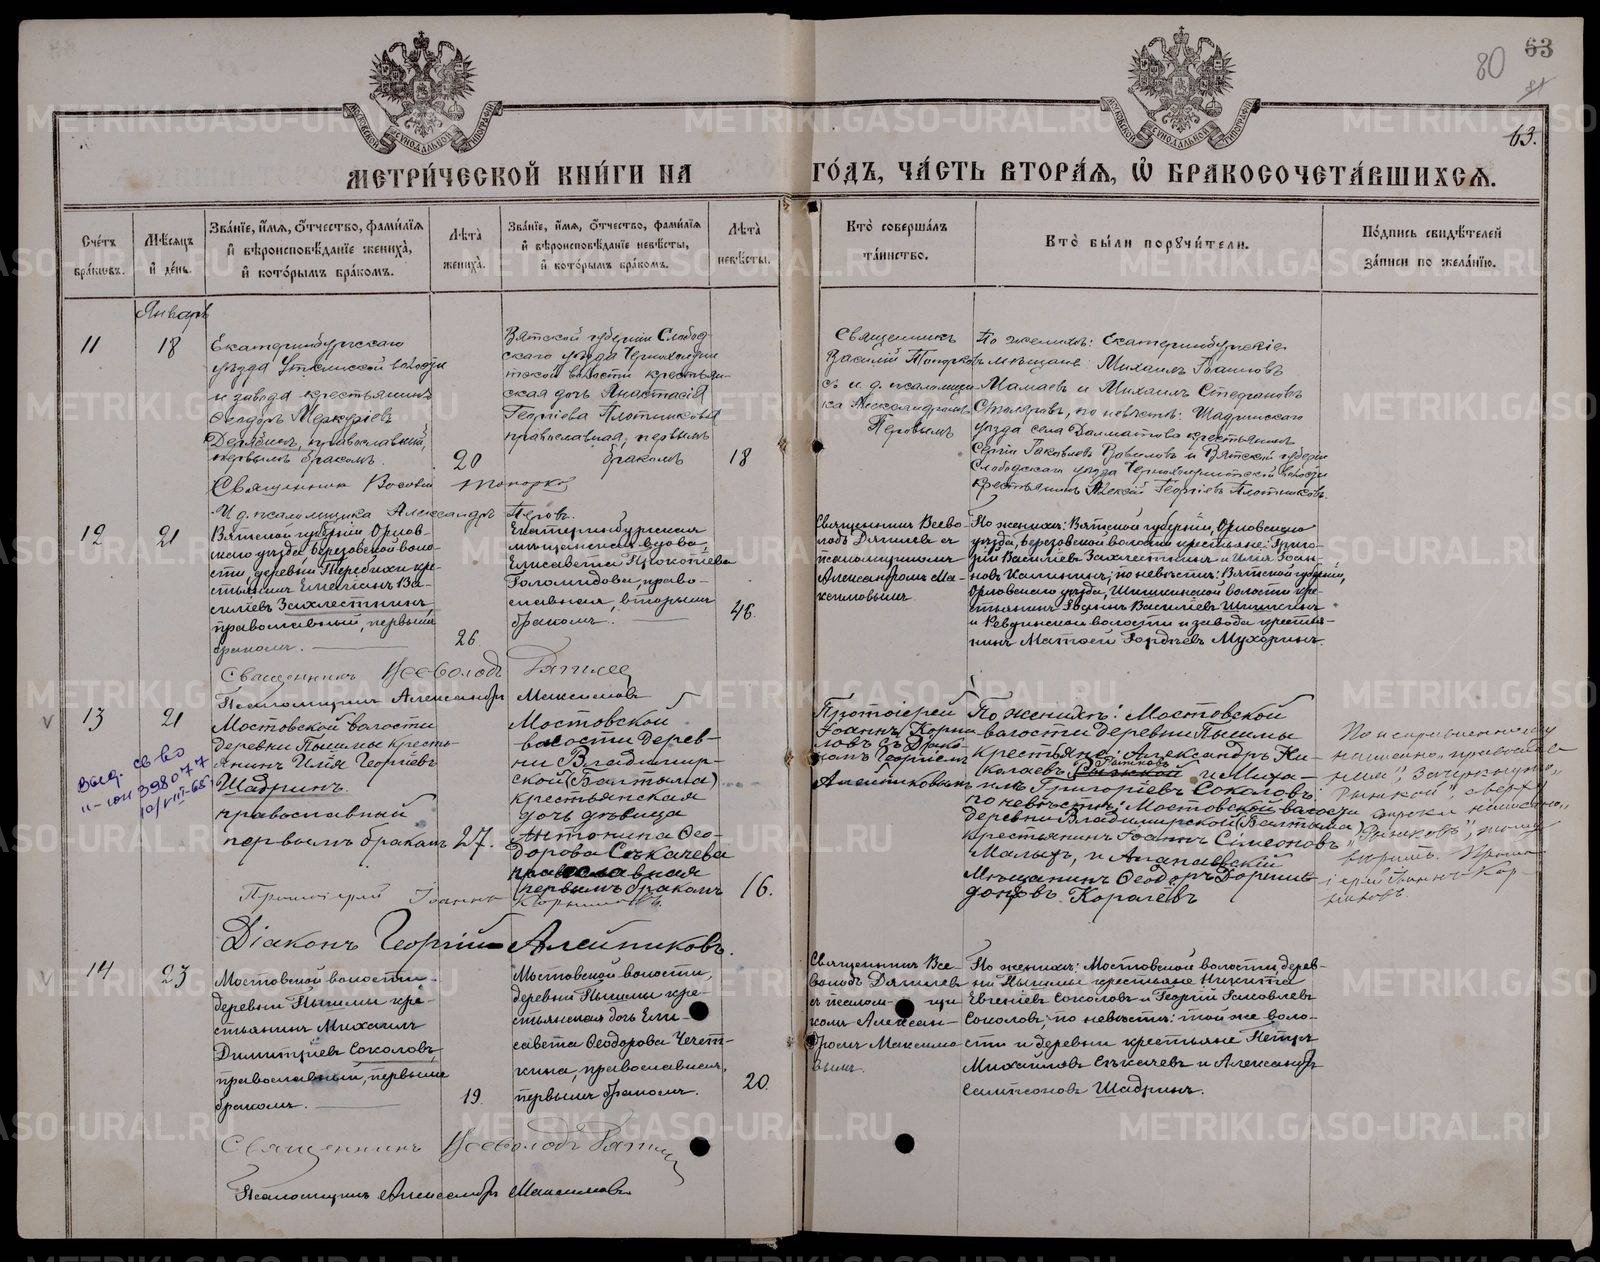 80 63
63.
МЕТРИ́ЧЕСКОЙ КНИ́ГИ НА ГО́ДЪ, ЧА́СТЬ ВТОРА́Я, Ѽ БРАКОСОЧЕТА́ВШИХСЯ.
Сче́тъ бра́ковъ.
Мѣ́сяцъ и҆ де́нь.
Зва́нїе, и҆́мя, ѻ҆́тчество, фами́лїя
и҆ вѣроисповѣ́данїе жениха̀,
и҆ кото́рымъ бра́комъ.
Лѣ́та жениха̀.
Зва́нїе, и҆́мя, ѻ҆́тчество, фами́лїя
и҆ вѣроисповѣ́данїе невѣ́сты,
и҆ кото́рымъ бра́комъ.
Лѣ́та невѣ́сты.
Кто̀ соверша́лъ
та́инство.
Кто̀ бы́ли порꙋчи́тели.
По́дпись свидѣ́телей
за́писи по жела́нїю.
Январь
11
18
Екатеринбургскаго
уѣзда Уткинской волости
и завода крестьянинъ
Ѳеодоръ Меркуріевъ
православный,
первымъ бракомъ.
20
Вятской губерніи Слобод-
скаго уѣзда
волости крестьян-
ская дочь Анастасія
Георгіева Плотникова
православная, первымъ
бракомъ
18
Священникъ
Василій Топорковъ
съ и. д. псаломщи-
ка Александромъ
Перовымъ
По женихѣ: Екатеринбургскіе
мѣщане Михаилъ Іоанновъ
Мамаевъ и Михаилъ Стефановъ
Столяровъ, по невѣстѣ: Шадринскаго
уѣзда села Далматова крестьянинъ
Сергій Іаковлевъ Вавиловъ и Вятской губерніи
Слободскаго уѣзда волости
крестьянинъ Алексѣй Георгіевъ Плотниковъ.
Священникъ Василій Топорковъ
И. д. псаломщика Александръ Перовъ.
12
21
Вятской губерніи Орлов-
скаго уѣзда, Березовской воло-
сти, деревни Теребихи кре-
стьянинъ Емеліанъ Ва-
силіевъ Захлестнинъ,
православный, первымъ
бракомъ.
26
Екатеринбургская
мѣщанская вдова
Елисавета Прокопіева
Голомидова, право-
славная, вторымъ
бракомъ.
46.
Священникъ Всево-
лодъ Дягилевъ съ
псаломщикомъ
Александромъ Ма-
ксимовымъ
По женихѣ: Вятской губерніи, Орловскаго
уѣзда, Березовской волости крестьяне: Григо-
рій Василіевъ Захлестнинъ и Илія Іоан-
новъ Калининъ; по невѣстѣ: Вятской губерніи,
Орловскаго уѣзда, Шишкинской волости кре-
стьянинъ Василіевъ Шишкинъ
и Ревдинской волости и завода крестья-
нинъ Матѳей Гордіевъ Мухоринъ.
Священникъ Всеволодъ Дягилев
Псаломщикъ Александръ Максимовъ
13
21
выд. св-во
II-ЮН 398077
10/VIII-65
Мостовской волости
деревни Пышмы кресть-
янинъ Илія Георгіевъ
Шадринъ.
православный
первымъ бракомъ
27.
Мостовской
волости Дерев-
ни Владимир-
ской (Балтыма)
крестьянская
дочь дѣвица
Антонина Ѳео-
дорова Сѣкачева
православная
первымъ бракомъ
16.
Протоіерей
Іоаннъ Корни-
ловъ съ Діако-
номъ Георгіемъ
Алейниковымъ
По женихѣ: Мостовской
волости деревни Пышмы
крестьяне: Александръ Ни-
колаевъ и Миха-
илъ Григоріевъ Соколовъ
по невѣстѣ: Мостовской волости
деревни Владимирской (Балтыма)
крестьянинъ Іоаннъ Симеоновъ
Малыхъ, и Алапаевскій
Мѣщанинъ Ѳеодоръ Дормид-
донтовъ Королёвъ
По исправленному
написано „православ-
ная", зачеркнуто
сверху
строки написано
вѣрить. Прото-
іерей Іоаннъ Кор-
ниловъ.
Протоіерей Іоаннъ Корниловъ.
Діаконъ Георгій Алейниковъ.
14
23
Мостовской волости
деревни Пышмы кре-
стьянинъ Михаилъ
Димитріевъ Соколовъ,
православный, первымъ
бракомъ.
19
Мостовской волости,
деревни Пышмы кре-
стьянская дочь Ели-
савета Ѳеодорова Чект-
кина, православная,
первымъ бракомъ.
20.
Священникъ Все-
володъ Дягилевъ
съ псалом-щи-
комъ Алексан-
дромъ Максимо-
вымъ.
По женихѣ: Мостовской волости, дерев-
ни Пышмы крестьяне Никита
Евгеніевъ Соколовъ и Георгій Іаковлевъ
Соколовъ; по невѣстѣ: той же воло-
сти и деревни крестьяне Петръ
Михаиловъ Сѣкачевъ и Александръ
Сампсоновъ Шадринъ.
Священникъ Всеволодъ Дягилев
Псаломщикъ Александръ Максимовъ
METRIKI.GASO-URAL.RU